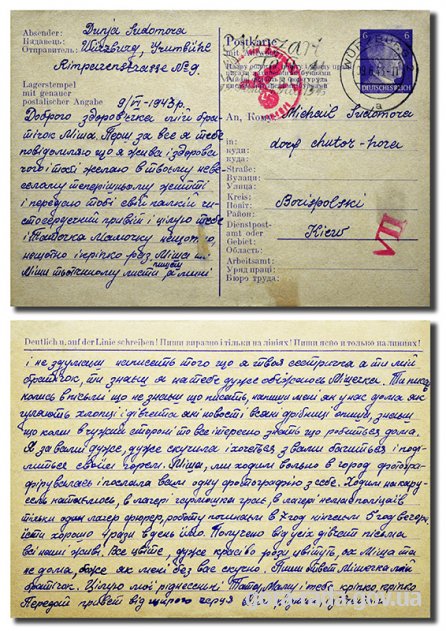 Absender: Dunja Sudomora
Надавець:
Отправитель: Würzburg, Frutbühl
Rimparerstrasse No 9.
Lagerstempel
mit genauer
postalischer Angabe 9/VI-1943 р.
Доброго здоровячка мій бра-
тічок Міша. Перш за все я тебе
повідомляю що я жива і здорова
чого і тобі желаю в твойому неве-
селому теперішньому житті
і передаю тобі свій палкий чи-
стосердечний привіт і цілую тебе
і Таточка Мамочку нещотно,
нещотно і кріпко раз. Міша ти
пишеш
Міши тьотчиному листи а мені
Postkarte
6 6
DEUTSCHES REICH
WÜRZBURG
An, Кому: Michail Sudomora
in: dorf chutor-hora
в:
куди:
куда:
Straße:
Вулиця:
Улица:
Kreis: Borispolski
Повіт:
Район:
Dienstpost-
amt oder Kiew
Gebiet:
Область:
Arbeitsamt:
Уряд праці:
Бюро труда:
VII
Deutlich u. auf der Linie schreiben! Пиши виразно і тільки на лініях! Пиши ясно и только на линиях!
і не здумаєш написать того що я твоя сестричка а ти мій
братічок, ти знаєш я на тебе дуже обіжаюсь Мішечка. Ти писав
колись в письмі що не знаєш що писать, напиши мені як у нас дома як
гуляють хлопці і дівчата які новості всякі дрібниці опиши, знаєш
що коли в чужій стороні то все інтересно знать що робиться дома.
Я за вами дуже, дуже скучила і хочеться з вами бачиться і под-
литься своїм горем. Міша, ми ходили тольно в город фотогра-
фірувалась і послала вам одну фотографію з себе. Ходили на кару-
сель каталась, в лагері гармошка грає, в лагері немає поліцаїв
тільки один лагер фюрер, роботу починаєм в 7 год кінчаєм 5 год вечора,
їсти хорошо 3 рази в день їмо. Получаю від усіх дівчат письма
всі наші живі. Все цвіте, дуже красіво рози цвітуть, ох Міша та
не дома, боже як мені без вас скучно. Пиши отвєт Мішечка мій
братічок. Цілую мої рідненькі Тата, Маму і тебе кріпко, кріпко
Передай привіт від
.gov.ua